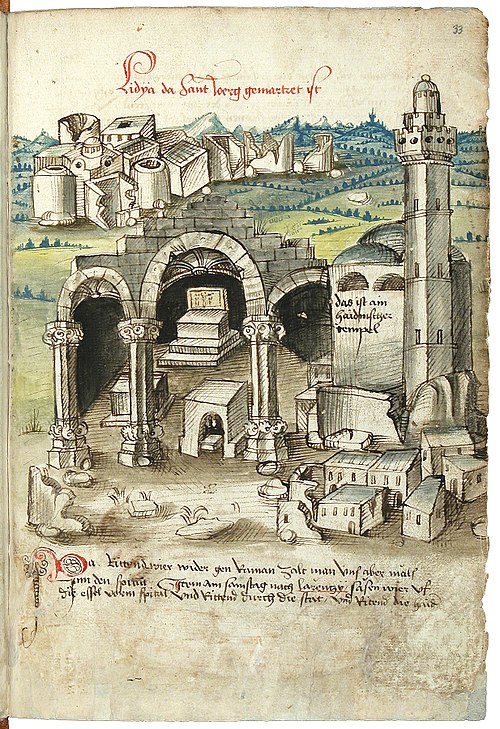 33
Lidÿa da sant Joerg gemartret ist
das ist ain
haidnischer
tempel
Da Rittend wier wider gen Raman Zalt man unß aber mals
Inn den spital am samstag nach larentze sasen wier uf
die essel vorm spital Und Rittend durch die stat, und Ritend die